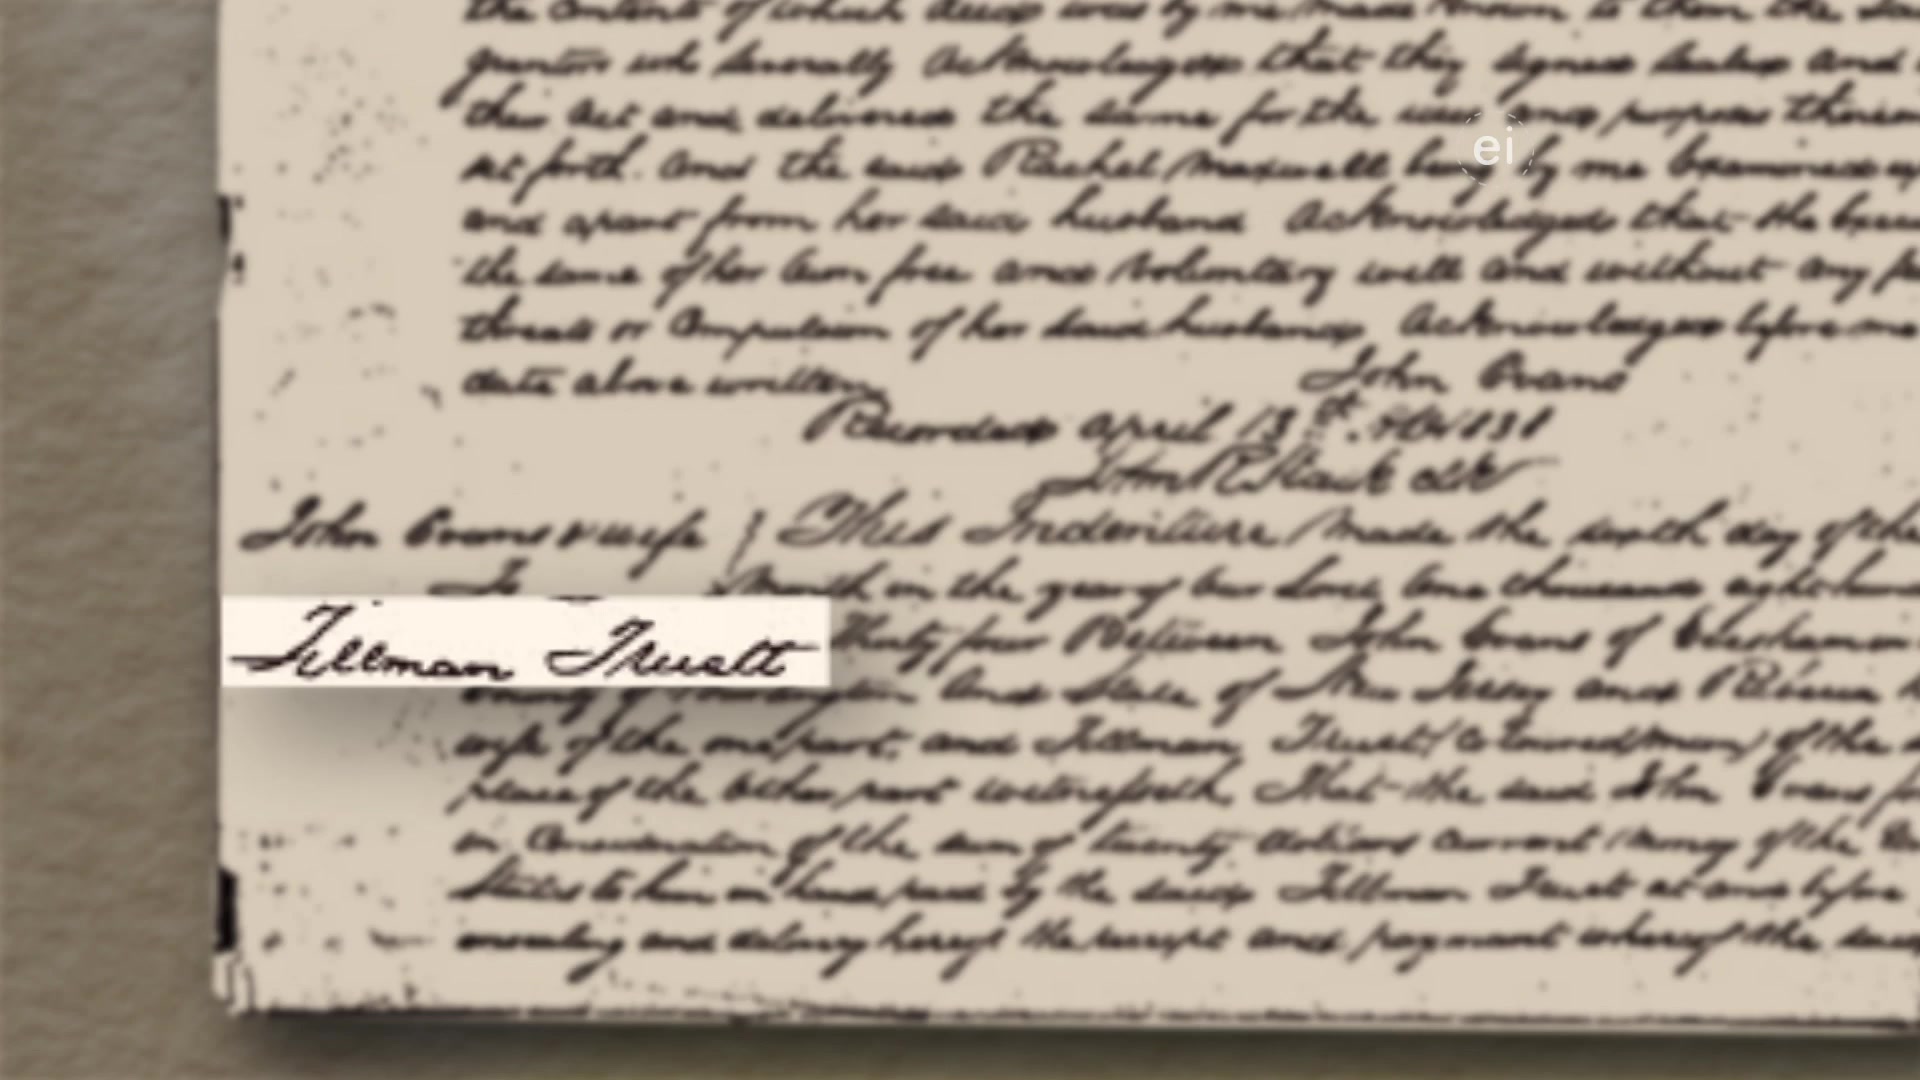 the Contents of which deed was by me made known to them the said
grantors who severally acknowledged that they signed sealed and
their act and delivered the same for the uses and purposes therein
set forth. And the said Rachel Maxwell being by me Examined
and apart from her said husband acknowledged that she
the same of her own free and voluntary will and without any
threats or Compulsion of her said husband, Acknowledged before me
date above written. John Evans
Recorded April 13th. AD 1831
John R Slack clk
John Evans & wife } This Indenture Made the sixth day of the
To Month in the year of our Lord one thousand eight
Tillman Truett
thirty four Between John Evans of Evesham in
County of Burlington And State of New Jersey and
wife of the one part, and Tillman Truett (Coloured man) of the
place of the other part witnesseth, That the said John Evans
in Consideration of the sum of twenty dollars current money of the
States to him in hand paid by the said Tillman Truett at and before
ensealing and delivery hereof the receipt and payment whereof the said
ei